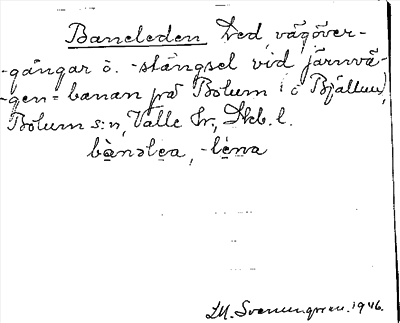 Baneleden, Led, vägöver-
-gångar o. -stängsel vid järnvä-
-gen = banan på Bolum o Bjällum,
Bolum s:n, Valle hr., Skb. l.
bànəlea, -lena
1946.